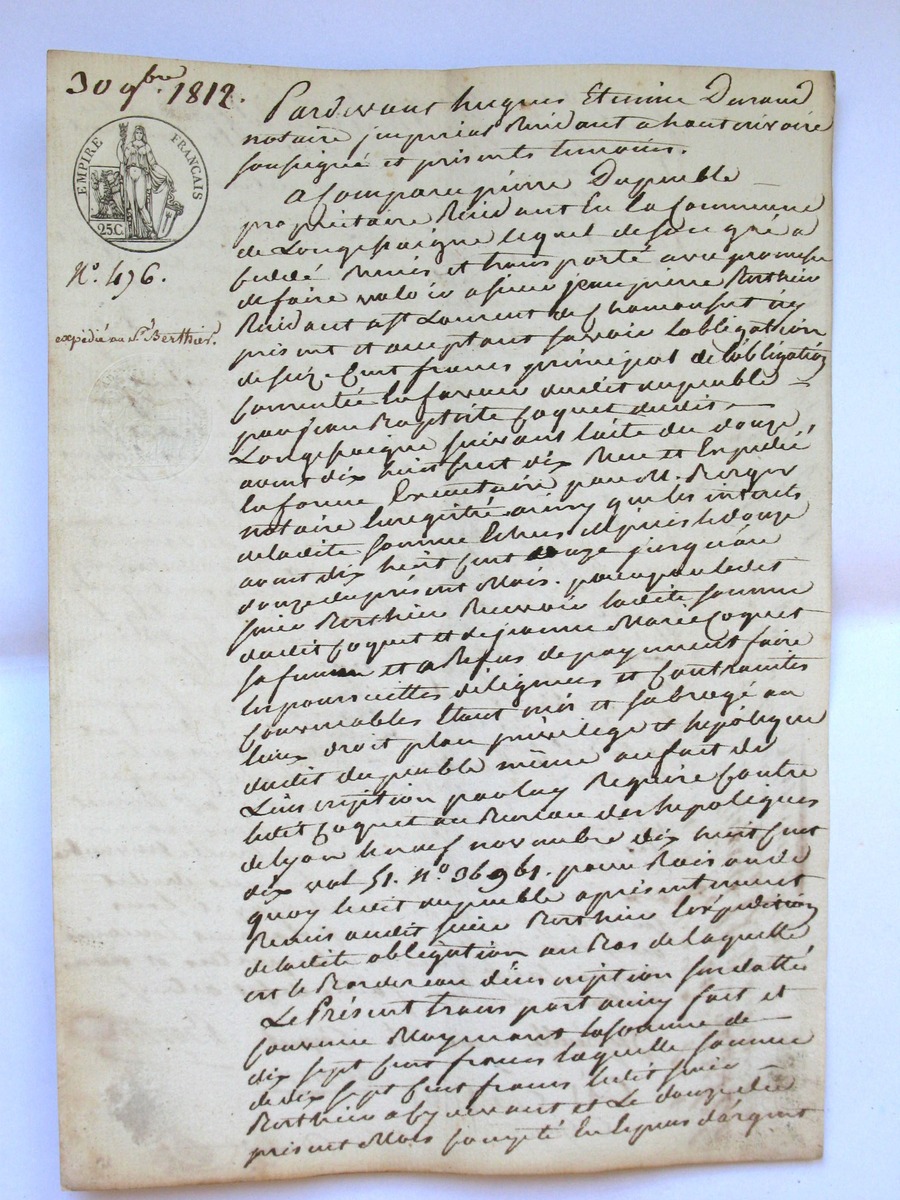 30 9bre. 1812.
EMPIRE FRANÇAIS
25 C.
No. 476.
expédié au Sr. Berthier.
Pardevant hugues Etienne Durand
notaire jmperial Residant a hauterivoire
soussigné et presents temoins.
a Comparu pierre Dupeuble
propriétaire Residant En la Commune
de Longessaigne lequel de son gré a
Cédé Remis et transporté avec promesse
de faire valoir a sieur jean pierre Berthier
Residant a st Laurent de Chamousset icy
présent et acceptant savoir Lobligation
de seize Cent francs principal de lobligation
Consentie En faveur dudit dupeuble
par jean Baptiste Coquet dudit
Longessaigne suivant lacte du douze
avout dix huit Cent dix Recu et Expédié
En forme Executoire par M. Berger
notaire Enregistré ainsy que les interets
de ladite somme Echus depuis le douze
avout dix huit Cent onze jusqu'au
douze du présent Mois. pour par ledit
sieur Berthier Recevoir ladite somme
dudit Coquet et de jeanne Marie Coquet
sa femme et a Refus de payement faire
les poursuittes diligences et Contraintes
Convenables Etant mis et subrogé au
lieux droit place privilege et hipoteque
dudit dupeuble même au fait de
Linscription par luy Requise Contre
ledit Coquet au Bureau des hipoteques
de lyon le neuf novembre dix huit Cent
dix vol 51. No. 36961. pour Raison de
quoy ledit dupeuble a présentement
Remis audit sieur Berthier lexpédition
de ladite obligation au Bas de laquelle
est le Bordereau dinscription susdatté
Le Présent transport ainsy fait et
Convenu Moyennant la somme de
dix sept Cent francs laquelle somme
de dix sept Cent francs ledit sieur
Berthier a Cy devant et Le douze du
présent Mois Compté En Espèces d'argent